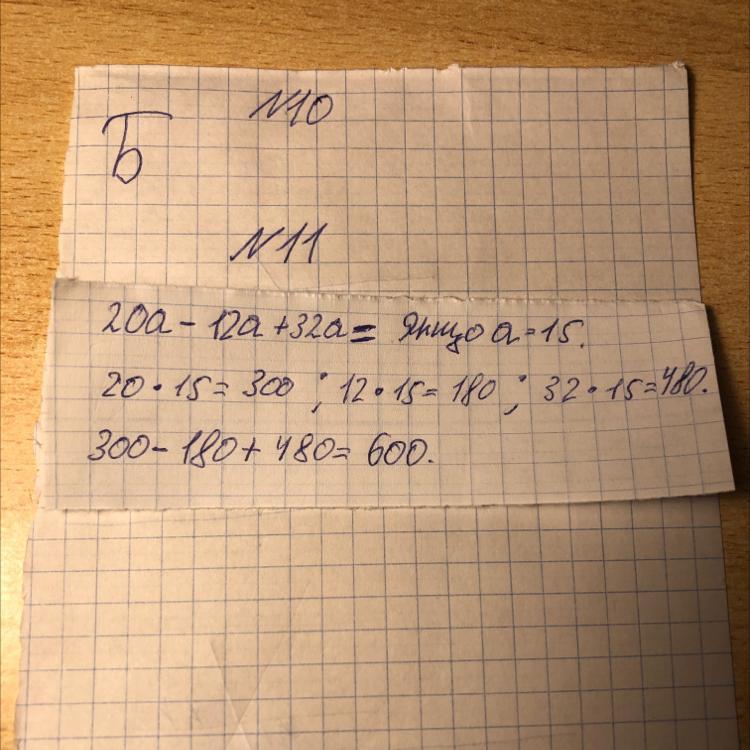 №10
Б
№11
20а - 12а + 32а = якщо а = 15.
20 · 15 = 300 ; 12 · 15 = 180 ; 32 · 15 = 480.
300 - 180 + 480 = 600.